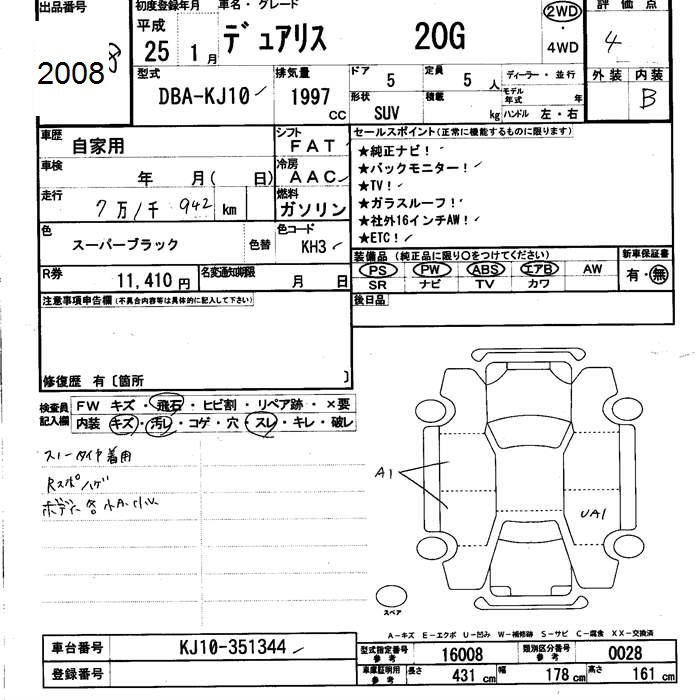 出品番号
2008
初度登録年月
平成
25 1月
車名・グレード
デュアリス 20G
2WD
・
4WD
評価点
4
型式
DBA-KJ10
排気量
1997 CC
ドア
5
定員
5 人
形状
SUV
積載
kg
ディーラー・並行
モデル年式 年
ハンドル 左・右
外装 内装
B
車歴
自家用
シフト
FAT
車検
年 月( 日)
冷房
AAC
走行
7万1千942 km
燃料
ガソリン
色
スーパーブラック
色替
色コード
KH3
R券
11,410円
名変通知期限
月 日
セールスポイント(正常に機能するものに限ります)
★純正ナビ!
★バックモニター!
★TV!
★ガラスルーフ!
★社外16インチAW!
★ETC!
装備品(純正品に限り○をつけてください)
PS PW ABS エアB AW
SR ナビ TV カワ
新車保証書
有・無
後日品
注意事項申告欄(不具合内容等は具体的に記入して下さい)
修復歴 有〔箇所 〕
検査員記入欄
FW キズ・飛石・ヒビ割・リペア跡・×要
内装 キズ・汚レ・コゲ・穴・スレ・キレ・破レ
スノータイヤ着用
Rスポハゲ
ボディ各小A.小U
A1
UA1
スペア
A-キズ E-エクボ U-凹み W-補修跡 S-サビ C-腐食 XX-交換済
車台番号
KJ10-351344
登録番号
型式指定番号 参考
16008
類別区分番号 参考
0028
車庫証明用 参考
長さ 431 cm 幅 178 cm 高さ 161 cm